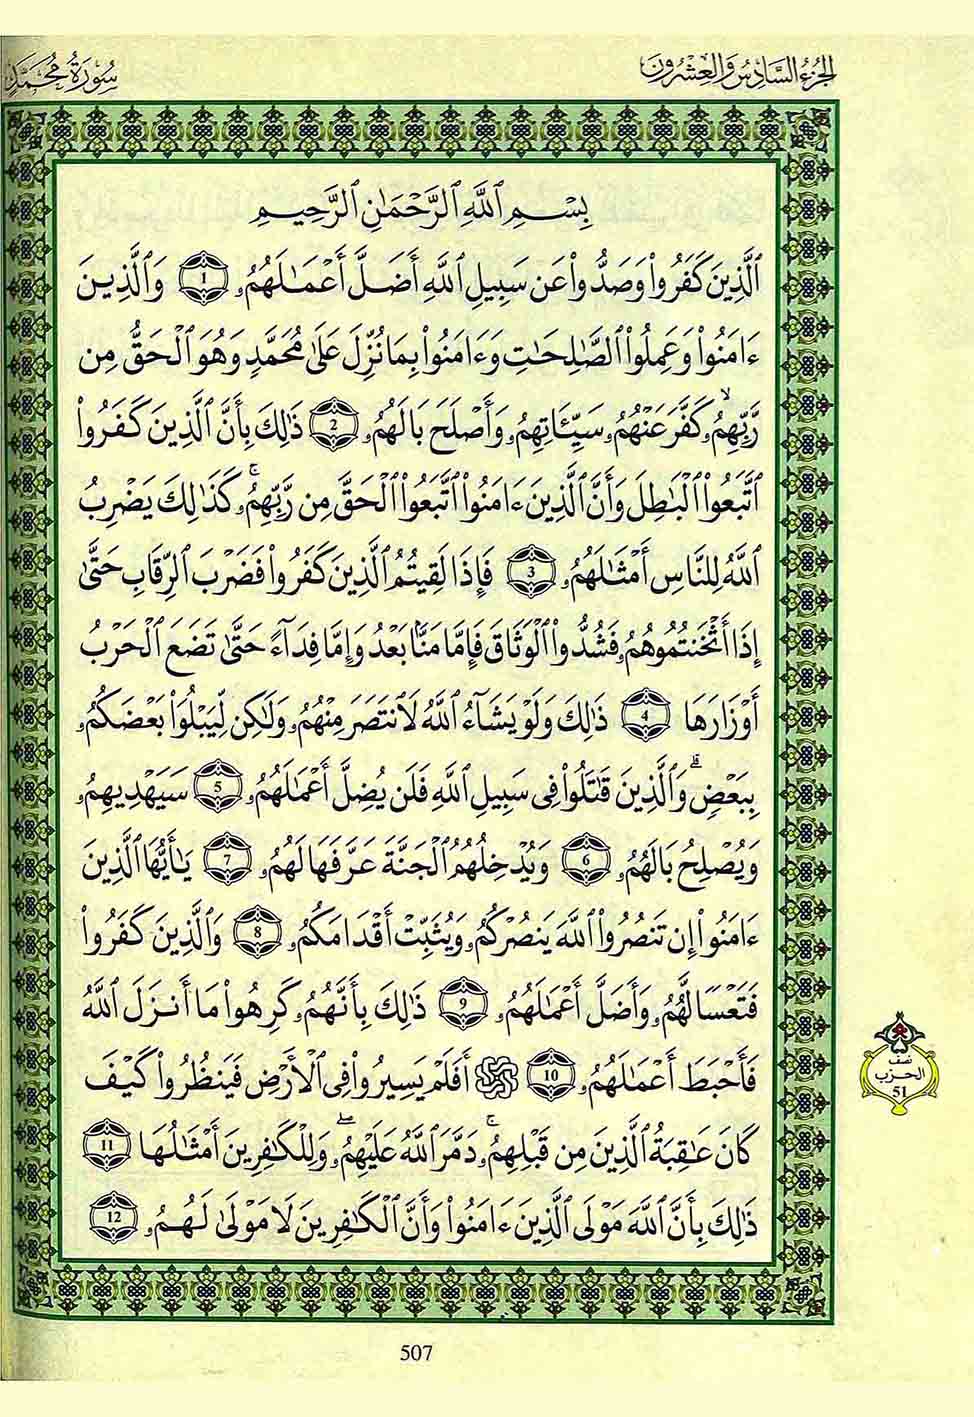 الجزء السادس والعشرون
سورة محمد
بِسْمِ ٱللَّهِ ٱلرَّحْمَٰنِ ٱلرَّحِيمِ
ٱلَّذِينَ كَفَرُوا۟ وَصَدُّوا۟ عَن سَبِيلِ ٱللَّهِ أَضَلَّ أَعْمَٰلَهُمُۥ 1 وَٱلَّذِينَ
ءَامَنُوا۟ وَعَمِلُوا۟ ٱلصَّٰلِحَٰتِ وَءَامَنُوا۟ بِمَا نُزِّلَ عَلَىٰ مُحَمَّدٍ وَهُوَ ٱلْحَقُّ مِن
رَّبِّهِمُۥ كَفَّرَ عَنْهُمُۥ سَيِّـَٔاتِهِمُۥ وَأَصْلَحَ بَالَهُمُۥ 2 ذَٰلِكَ بِأَنَّ ٱلَّذِينَ كَفَرُوا۟
ٱتَّبَعُوا۟ ٱلْبَٰطِلَ وَأَنَّ ٱلَّذِينَ ءَامَنُوا۟ ٱتَّبَعُوا۟ ٱلْحَقَّ مِن رَّبِّهِمُۥۚ كَذَٰلِكَ يَضْرِبُ
ٱللَّهُ لِلنَّاسِ أَمْثَٰلَهُمُۥ 3 فَإِذَا لَقِيتُمُ ٱلَّذِينَ كَفَرُوا۟ فَضَرْبَ ٱلرِّقَابِ حَتَّىٰ
إِذَا أَثْخَنتُمُوهُمُۥ فَشُدُّوا۟ ٱلْوَثَاقَ فَإِمَّا مَنًّۢا بَعْدُ وَإِمَّا فِدَآءً حَتَّىٰ تَضَعَ ٱلْحَرْبُ
أَوْزَارَهَا 4 ذَٰلِكَ وَلَوْ يَشَآءُ ٱللَّهُ لَٱنتَصَرَ مِنْهُمُۥ وَلَٰكِن لِّيَبْلُوَا۟ بَعْضَكُمُۥ
بِبَعْضٍۗ وَٱلَّذِينَ قَٰتَلُوا۟ فِى سَبِيلِ ٱللَّهِ فَلَن يُضِلَّ أَعْمَٰلَهُمُۥ 5 سَيَهْدِيهِمُۥ
وَيُصْلِحُ بَالَهُمُۥ 6 وَيُدْخِلُهُمُ ٱلْجَنَّةَ عَرَّفَهَا لَهُمُۥ 7 يَٰأَيُّهَا ٱلَّذِينَ
ءَامَنُوا۟ إِن تَنصُرُوا۟ ٱللَّهَ يَنصُرْكُمُۥ وَيُثَبِّتْ أَقْدَامَكُمُۥ 8 وَٱلَّذِينَ كَفَرُوا۟
فَتَعْسًا لَّهُمُۥ وَأَضَلَّ أَعْمَٰلَهُمُۥ 9 ذَٰلِكَ بِأَنَّهُمُۥ كَرِهُوا۟ مَا أَنزَلَ ٱللَّهُ
فَأَحْبَطَ أَعْمَٰلَهُمُۥ 10 أَفَلَمْ يَسِيرُوا۟ فِى ٱلْأَرْضِ فَيَنظُرُوا۟ كَيْفَ
كَانَ عَٰقِبَةُ ٱلَّذِينَ مِن قَبْلِهِمُۥۚ دَمَّرَ ٱللَّهُ عَلَيْهِمُۥۖ وَلِلْكَٰفِرِينَ أَمْثَٰلُهَا 11
ذَٰلِكَ بِأَنَّ ٱللَّهَ مَوْلَى ٱلَّذِينَ ءَامَنُوا۟ وَأَنَّ ٱلْكَٰفِرِينَ لَا مَوْلَىٰ لَهُمُۥ 12
نصف
الحزب
51
507